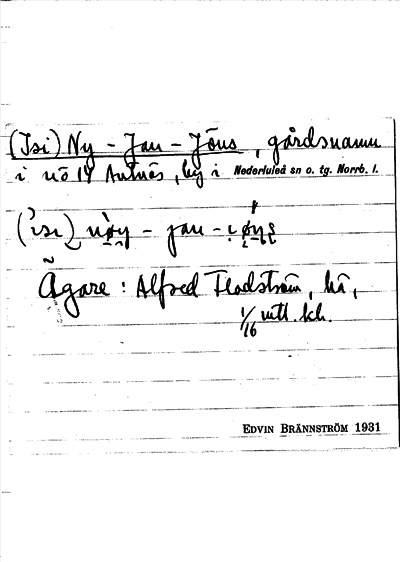 (Isi) Ny - Jan - Jöns, gårdsnamn
i nö 14 Antnäs, by i Nederluleå sn o. tg. Norrb. l.
- jan -
Ägare: Alfred Flodström, hä,
1/16 mtl. kh.
EDVIN BRÄNNSTRÖM 1931